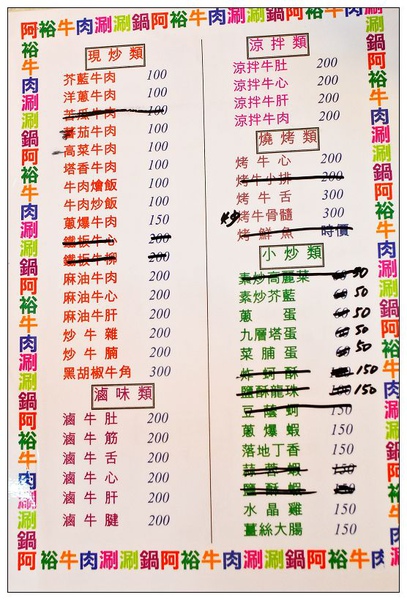 阿裕牛肉涮涮鍋阿裕牛肉涮涮鍋阿裕牛肉涮涮鍋
現炒類
芥藍牛肉 100
洋蔥牛肉 100
苦瓜牛肉 100
蕃茄牛肉 100
高菜牛肉 100
塔香牛肉 100
牛肉燴飯 100
牛肉炒飯 100
蔥爆牛肉 150
鐵板牛心 200
鐵板牛柳 200
麻油牛肉 200
麻油牛心 200
麻油牛肝 200
炒牛雜 200
炒牛腩 200
黑胡椒牛角 300
滷味類
滷牛肚 200
滷牛筋 200
滷牛舌 200
滷牛心 200
滷牛肝 200
滷牛腱 200
涼拌類
涼拌牛肚 200
涼拌牛心 200
涼拌牛肝 200
涼拌牛肉 200
燒烤類
烤牛心 200
烤牛小排 200
烤牛舌 300
烤牛骨髓 300
烤鮮魚 時價
小炒類
素炒高麗菜 50
素炒芥藍 50
蔥蛋 50
九層塔蛋 50
菜脯蛋 50
炸蚵酥 150
鹽酥龍珠 150
豆蔭蚵 150
蔥爆蝦 150
落地丁香 150
蒜蓉蝦 150
鹽酥蝦
水晶雞 150
薑絲大腸 150
阿裕牛肉涮涮鍋阿裕牛肉涮涮鍋阿裕牛肉涮涮鍋